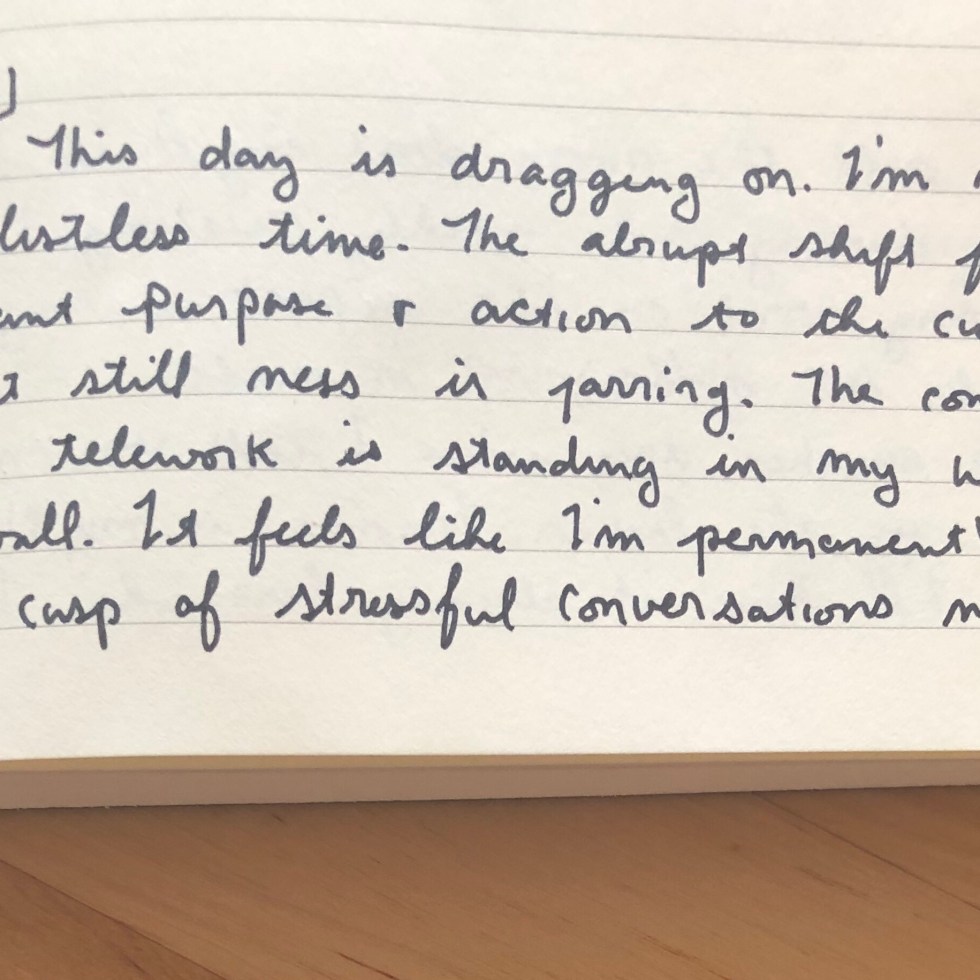 This day is dragging on. I'm
listless time. The abrupt shift
purpose & action to the
still ness is jarring. The
telework is standing in my
It feels like I'm permanent
cusp of stressful conversations